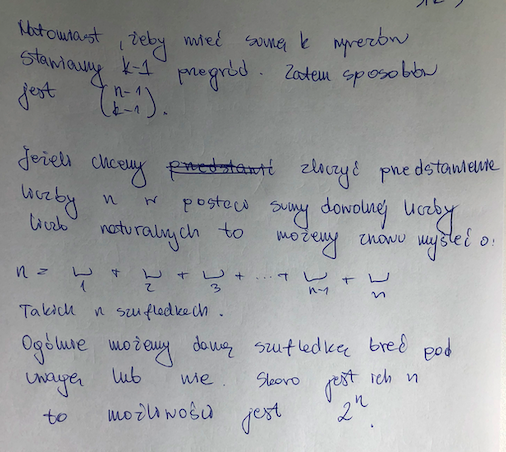 Natomiast, żeby mieć sumę k wyrazów
stawiamy k-1 przegród. Zatem sposobów
jest (n-1 k-1).
Jeżeli chcemy przedstawić zliczyć przedstawienie
liczby n w postaci sumy dowolnej liczby
liczb naturalnych to możemy znowu myśleć o:
n = ⊔ + ⊔ + ⊔ + ... + ⊔ + ⊔
1 2 3 n-1 n
Takich n szufledkach.
Ogólnie możemy daną szufledkę brać pod
uwagę lub nie. Skoro jest ich n
to możliwości jest 2^n.